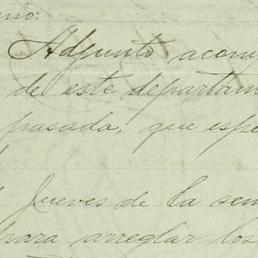 Adjunto acom
de este departam
pasada, que espe
Jueves de la sem
para arreglar los